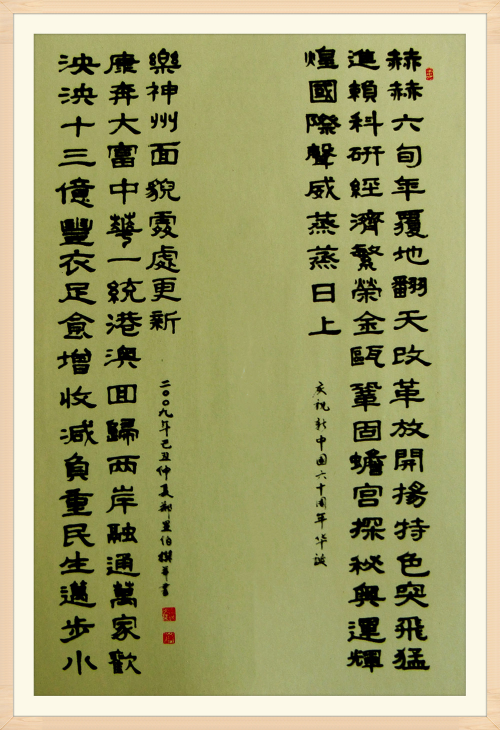 赫赫六旬年覆地翻天改革放開揚特色突飛猛
進賴科研經濟繁榮金甌鞏固蟾宫探秘奥運輝
煌國際聲威蒸蒸日上
庆祝新中国六十周年华诞
泱泱十三億豐衣足食增收減負重民生邁步小
康奔大富中華一統港澳回歸兩岸融通萬家歡
樂神州面貌處處更新
二〇〇九年己丑仲夏伯撰并書